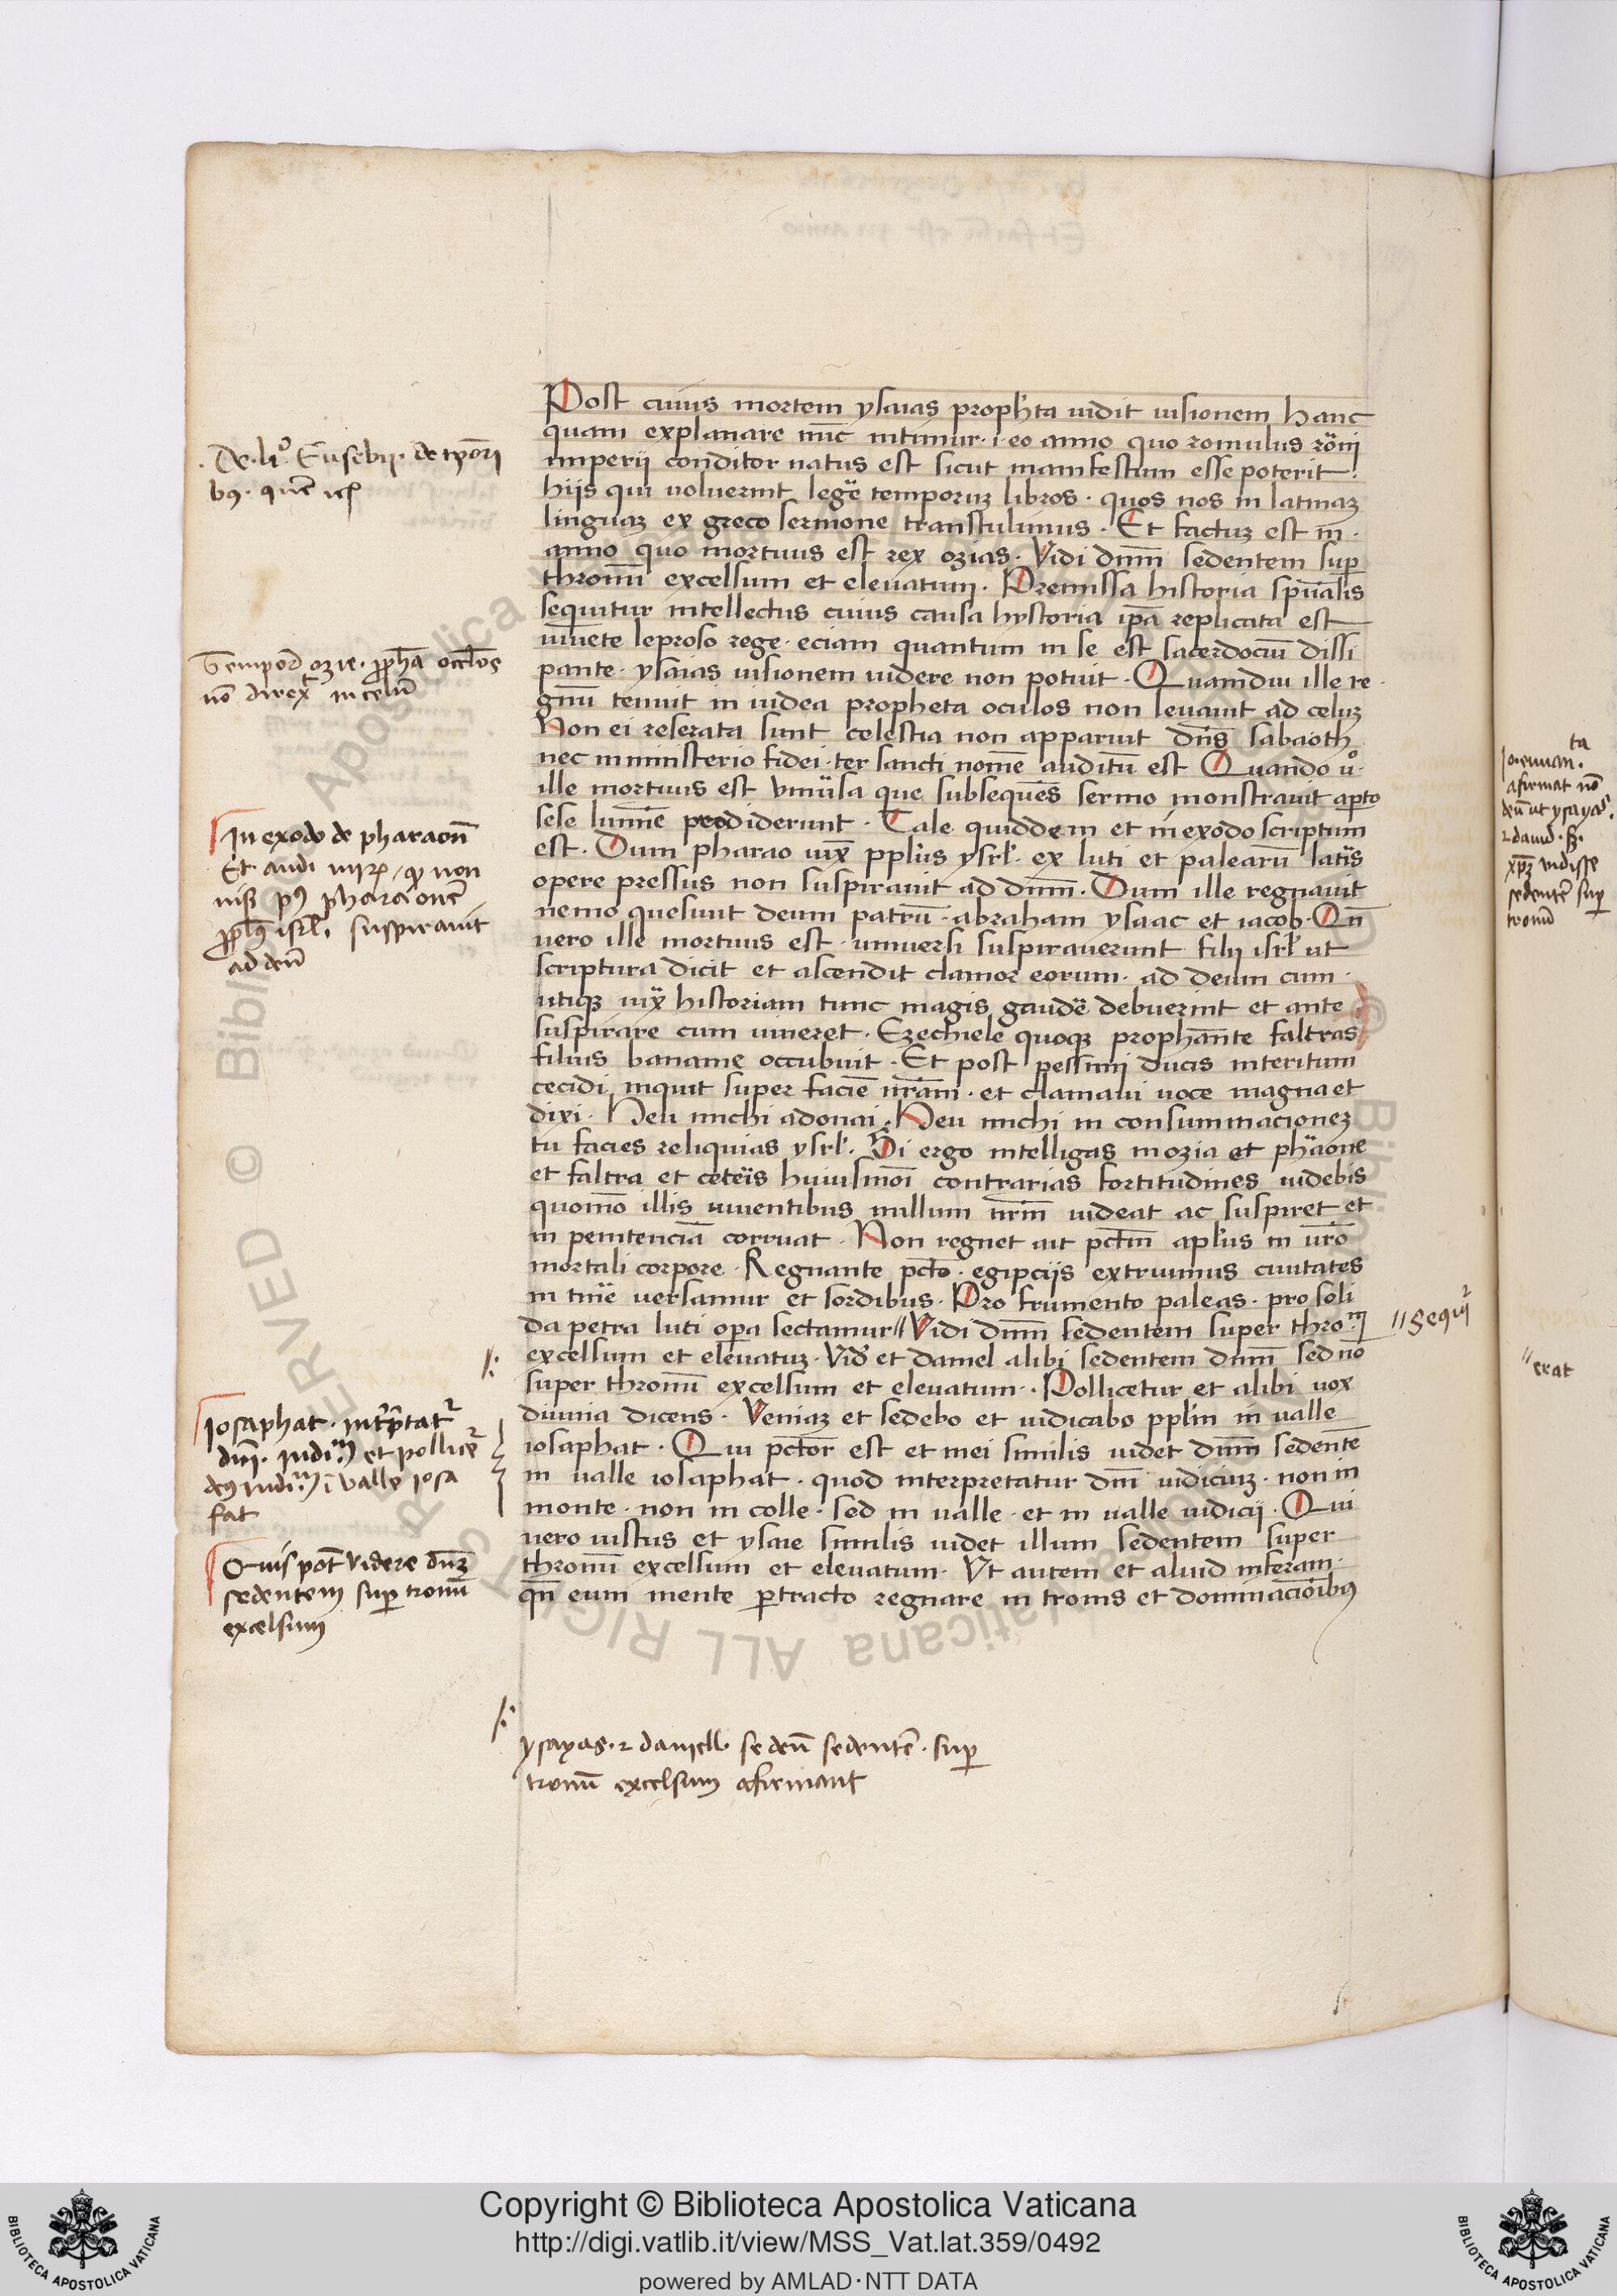 Post cuius mortem ysaias proph̄ta uidit uisionem hanc
quam explanare nūc nitimur · i · eo anno quo romulus rōni
imperii conditor natus est sicut manifestum esse poterit ·
hiis qui uoluerint legē temporuʒ libros · quos nos in latinaʒ
linguaʒ ex greco sermone transtulimus · Et factuʒ est in ·
anno quo mortuus est rex ozias · Vidi dn̄m sedentem sup̄
thronū excelsum et eleuatum · Premissa historia spūalis
sequitur intellectus cuius causa hystoria ip̄a replicata est
uiuēte leproso rege · eciam quantum in se est sacerdociū dissi
pante · ysaias uisionem uidere non potuit · Quamdiu ille re ·
gnū tenuit in iudea propheta oculos non leuauit ad celuʒ
Non ei reserata sunt celestia non apparuit dn̄s sabaoth
nec in ministerio fidei · ter sancti nomē auditū est Quando uͦ ·
ille mortuus est vniūsa que subsequēs sermo monstrauit ap̄to
sese lumīe prodiderunt · Tale quiddem et in exodo scriptum
est · Dum pharao uix̄ ppl̄us ysrl̄ · ex luti et palearū latīs
opere pressus non suspirauit ad dn̄m · Dum ille regnauit
nemo quesiuit deum patrū · abraham ysaac et iacob · Qn̄
uero ille mortuus est · uniuersi suspirauerunt filij isrl̄ ut
scriptura dicit et ascendit clamor eorum · ad deum cum ·
utiqʒ iux̄ historiam tunc magis gaudē debuerint et ante
suspirare cum uiueret · Ezechiele quoqʒ prophānte faltras
filius baname occubuit · Et post pessimi ducis interitum
cecidi inquit super faciē mēam · et clamaui uoce magna et
dixi · Heu michi adonai · Heu michi in consummacioneʒ
tu facies reliquias ysrl̄ · Si ergo intelligas in ozia et phāone
et faltra et ceteīs huiusmōi contrarias fortitudines uidebis
quomō illis uiuentibus nullum nr̄m uideat ac suspiret et
in penitenciā corruat · Non regnet ait pct̄m apl̄us in ur̄o
mortali corpore · Regnante pct̄o · egipcijs extruimus ciuitates
in cinē uersamur et sordibus · Pro frumento paleas · pro soli
da petra luti opa sectamur // Vidi dn̄m sedentem super thro·m̄
excelsum et eleuatuʒ · Vid̄ et daniel alibi sedentem dn̄m sed nō
super thronū excelsum et eleuatum · Pollicetur et alibi uox
diuina dicens · Veniaʒ et sedebo et iudicabo ppl̄m in ualle
iosaphat · Qui pct̄or est et mei similis uidet dn̄m sedentē
in ualle iosaphat · quod interpretatur dn̄i iudiciuʒ · non in
monte · non in colle · sed in ualle · et in ualle iudicij · Qui
uero iustus et ysaie similis uidet illum sedentem super
thronū excelsum et eleuatum · Vt autem et aliud inferam ·
qn̄ eum mente p̄tracto regnare in tronis et dominaciōibus
· De · liͦ · Eusebij · de tp̄ori
bꝰ ·
Tempore ozie · pph̄a occl̄os
nō direx̄ in celū
In exodo de pharaon̄
Et audi mir̄ / qʒ non
nisi pꝰ pharaonē
ppl̄s isrl̄ suspirauit
ad deū
Iosaphat · int̄p̄tat͛
dn̄i · iudi·m̄ et pollicet͛
deꝰ iudi·m̄ ī valle iosa
fat
Quis pot̄ videre dn̄ʒ
sedentem sup̄ tronū
excelsum
// Sequit͛
ysayas · ⁊ daniell · se deū sedentē · sup̄
tronū excelsum afirmant
Io · euuan · ta
afirmat nō
deū ut ysayas
⁊ dauid · sʒ ·
xp̄ʒ uidisse
sedentē sup̄
tronū
// erat
Copyright © Biblioteca Apostolica Vaticana
http://digi.vatlib.it/view/MSS_Vat.lat.359/0492
powered by AMLAD·NTT DATA
BIBLIOTECA APOSTOLICA VATICANA
BIBLIOTECA APOSTOLICA VATICANA